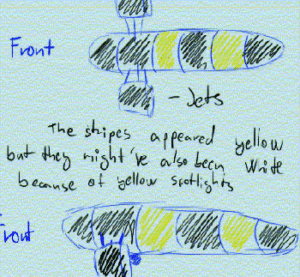 Front
- Jets
The stripes appeared yellow
but they might've also been White
because of yellow spotlights
Front